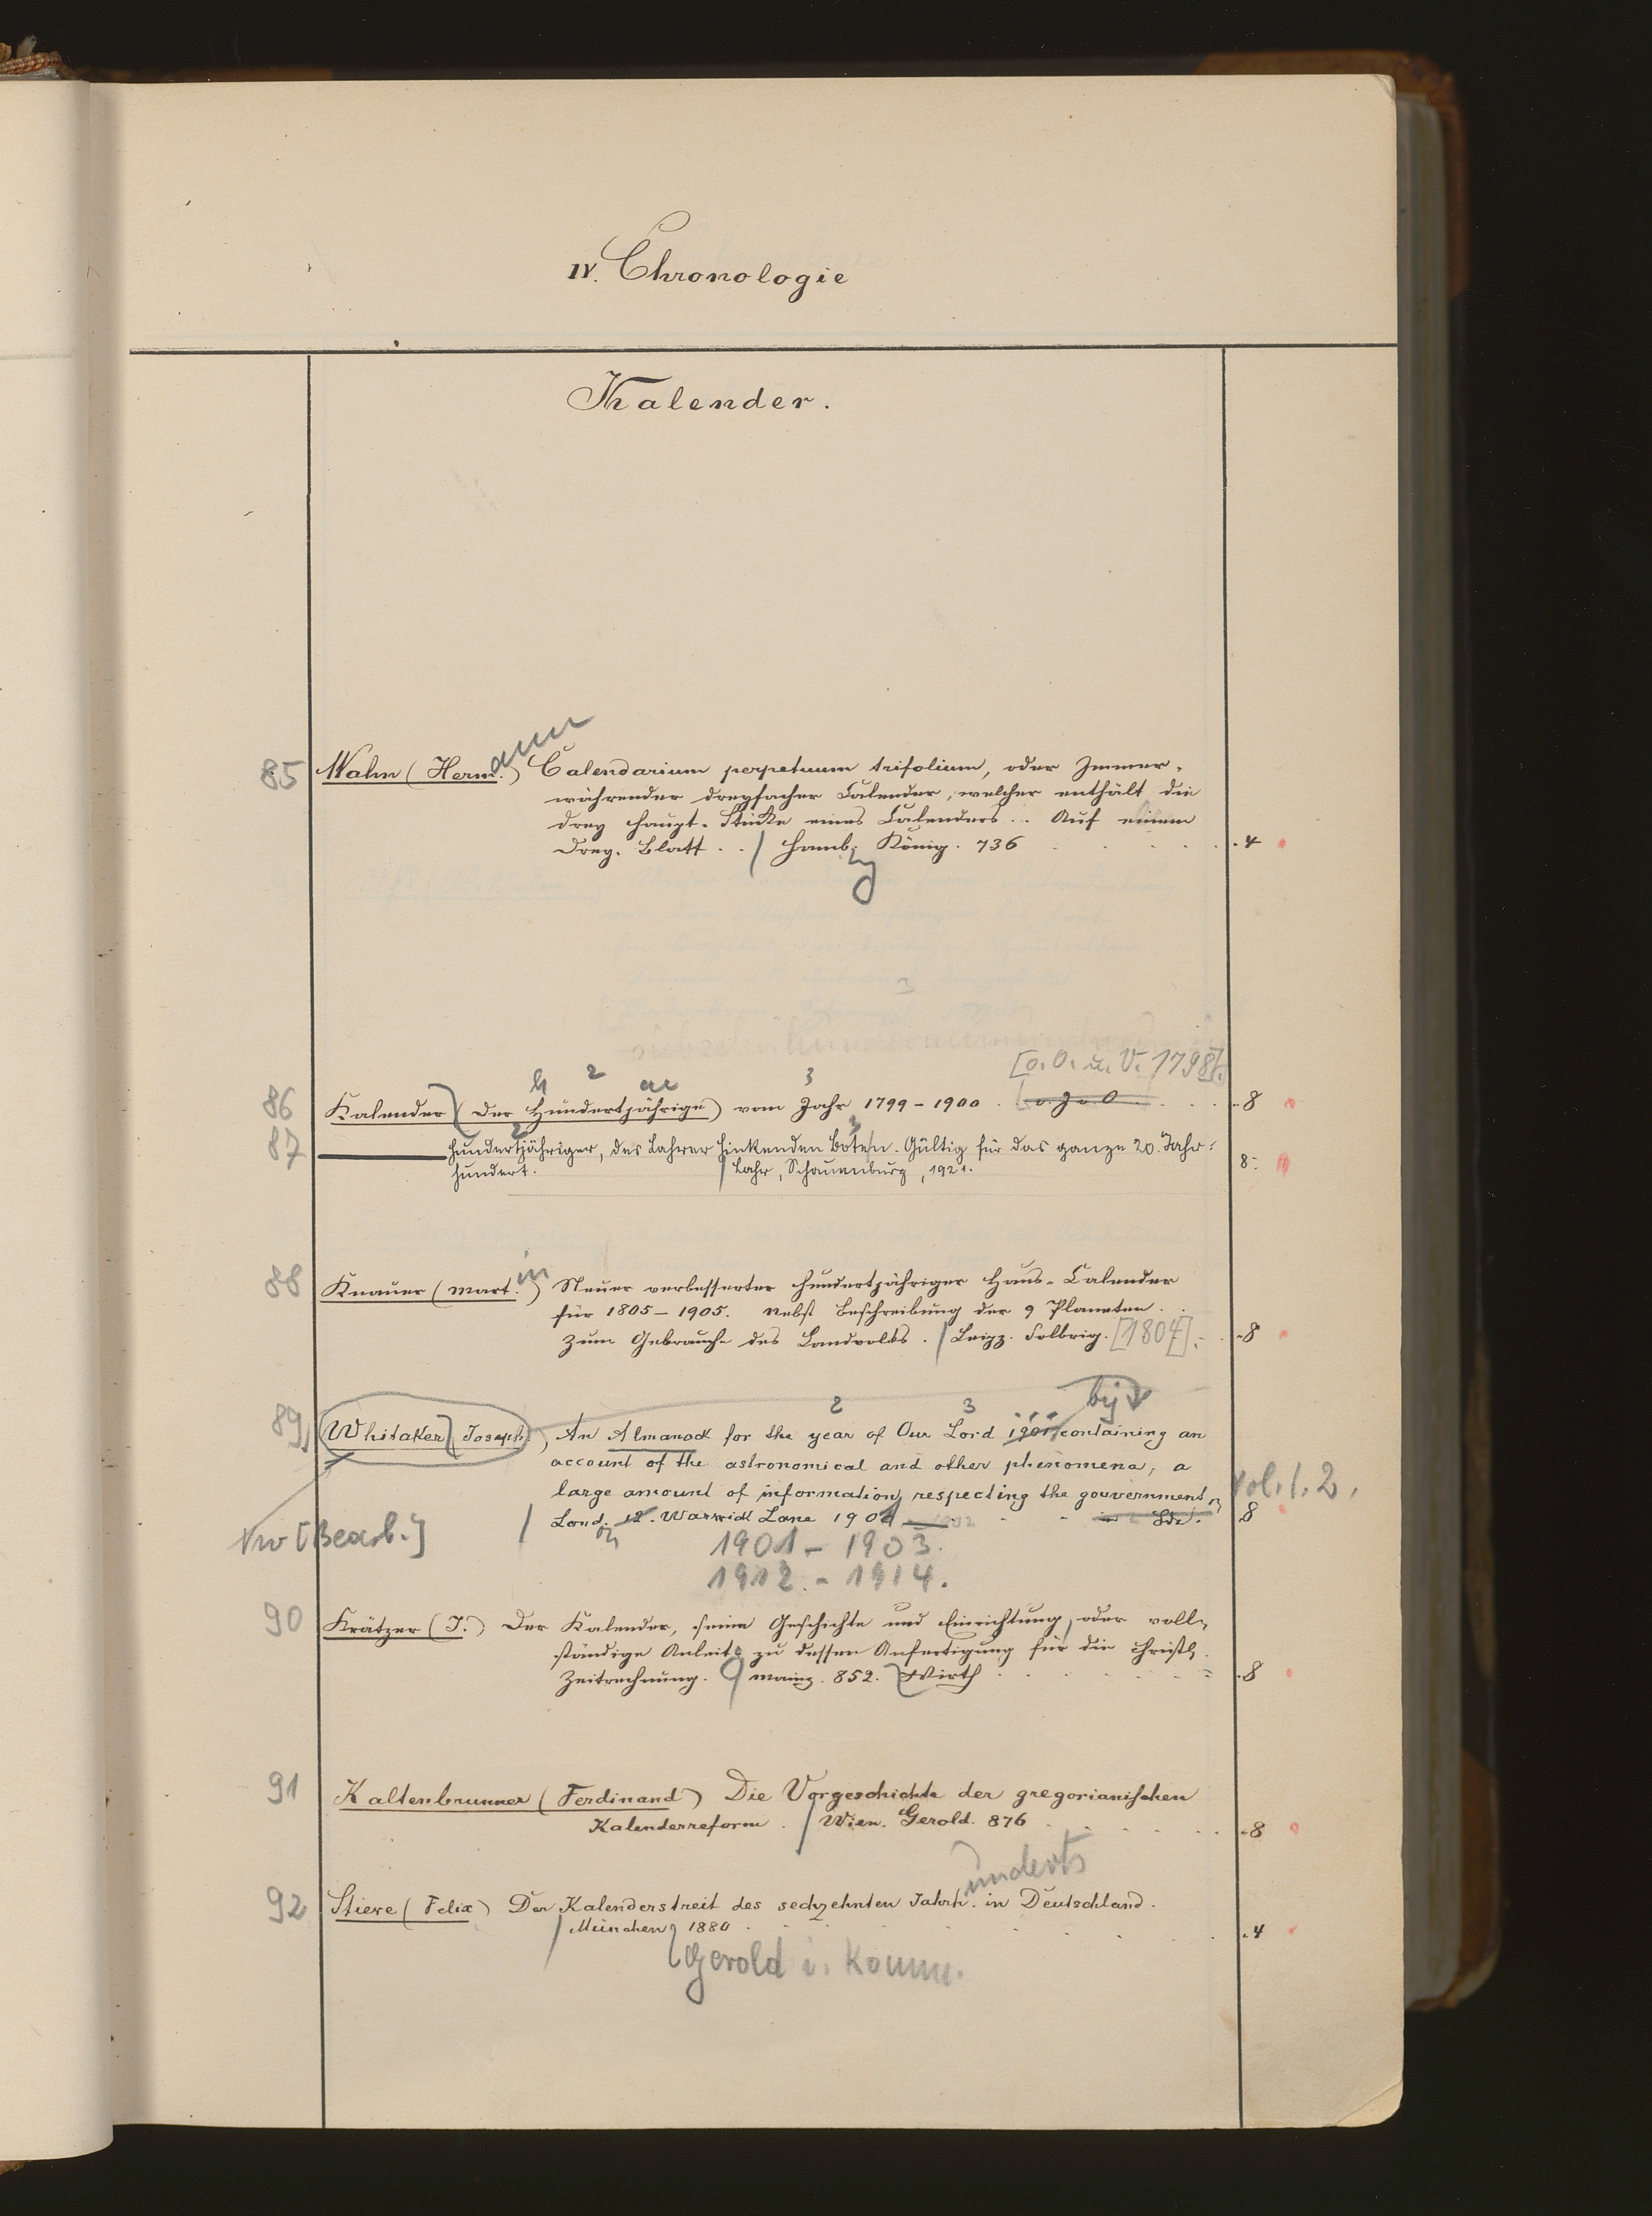 IV. Chronologie
Kalender.
85 Wahn (Herm.) ann Calendarium perpetuum trifolium, oder Immer-
währender dreyfacher Calender, welcher enthält die
drey Haupt-Stücke eines Calenders... Auf einem
Drey-Blatt.. / Hamb. g König. 736 4
[o. O. u. V. 1798].
h 2 ae 3
86 Kalender (Der Hundertjährige) vom Jahr 1799-1900 . o. J. u. O 8
2 3
87 ——— Hundertjähriger, des Lahrer Hinkenden Boten. Gültig für das ganze 20. Jahr-
hundert. / Lahr, Schauenburg, 1921. 8
88 Knauer (Mart.) in Neuer verbesserter hundertjähriger Haus-Calender
für 1805-1905. Nebst Beschreibung der 9 Planeten.
Zum Gebrauche des Landvolks. / Leipz. Solbrig. [1804]. 8
2 3 ... by
89 Whitaker (Joseph), An Almanack for the year of Our Lord 1901 containing an
account of the astronomical and other phenomena, a
large amount of information respecting the gouvernment, vol. 1. 2.
/ Lond. 12. Warwick Lane 1901 1902 8
Vw [Bearb.] 1901 - 1903.
1912 - 1914.
90 Krätzer (J.) Der Kalender, seine Geschichte und Einrichtung, oder voll-
ständige Anleitg zu dessen Anfertigung für die christl.
Zeitrechnung. / Mainz. 852. Wirth 8
91 Kaltenbrunner (Ferdinand) Die Vorgeschichte der gregorianischen
Kalenderreform. / Wien. Gerold. 876 8
underts
92 Stieve (Felix) Der Kalenderstreit des sechzehnten Jahrh. in Deutschland.
/ München 1880 4
Gerold i. Komm.